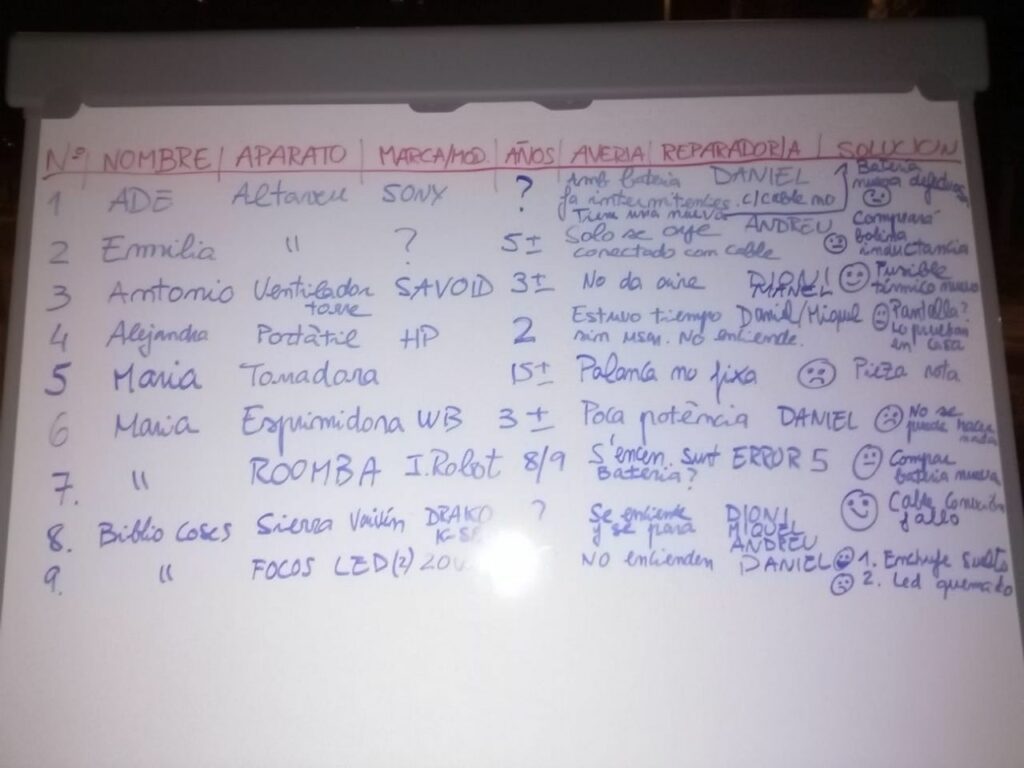 Nº NOMBRE APARATO MARCA/MOD. AÑOS AVERIA REPARADOR/A SOLUCION
1 ADE Altaveu SONY ? Amb bateria DANIEL Bateria
fa intermitencies. c/cable no nueva defectuosa
Tiene una nueva
2 Emilia " ? 5± Solo se oye ANDREU Comprará
conectado con cable bobina
inductancia
3 Antonio Ventilador SAVOID 3± No da aire DIONI Fusible
torre MANEL térmico nuevo
4 Alejandra Portàtil HP 2 Estuvo tiempo Daniel/Miquel Pantalla?
sin usar. No enciende. Lo prueban
en casa
5 Maria Tonadora 15± Palanca no fixa Pieza rota
6 Maria Exprimidora WB 3± Poca potència DANIEL No se
puede hacer
nada
7. " ROOMBA I.Robot 8/9 S'encen. surt ERROR 5 Comprar
Bateria? bateria nueva
8. Biblio coses Sierra Vaivén DRAKO ? Se enciende DIONI Cable conexión
y se para MIQUEL fallo
ANDREU
9. " FOCOS LED (2) NO encienden DANIEL 1. Enchufe suelto
2. Led quemado